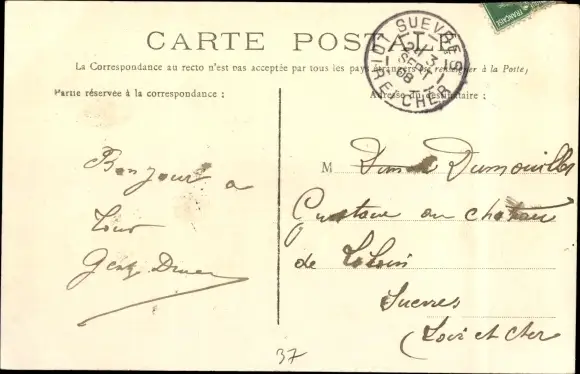 CARTE POSTALE
La Correspondance au recto n'est pas acceptée par tous les pays étrangers (se renseigner à la Poste)
SUEVRES
LOIR-ET-CHER
SEPT
08
Partie réservée à la correspondance :
Adresse du destinataire :
Bonjour a
tous
M Dumouillé
Gustave au chateau
de
Suevres
(Loir et Cher
37